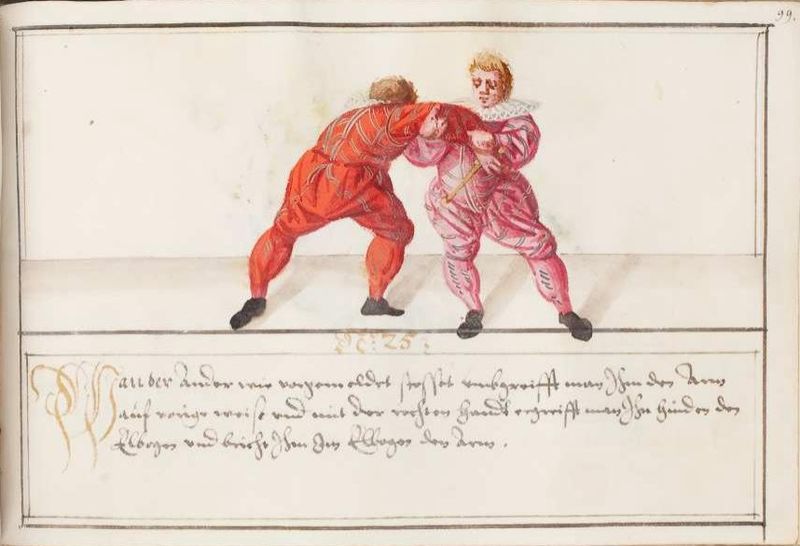 99.
N: 25:
Wan der Ander wie vorgemeldet stosset umbgreifft man Ihm den Arm
auf vorige weise und mit der rechten handt ergreifft man Ihn hinden den
Elbogen und bricht Ihm Im Ellbogen den Arm.